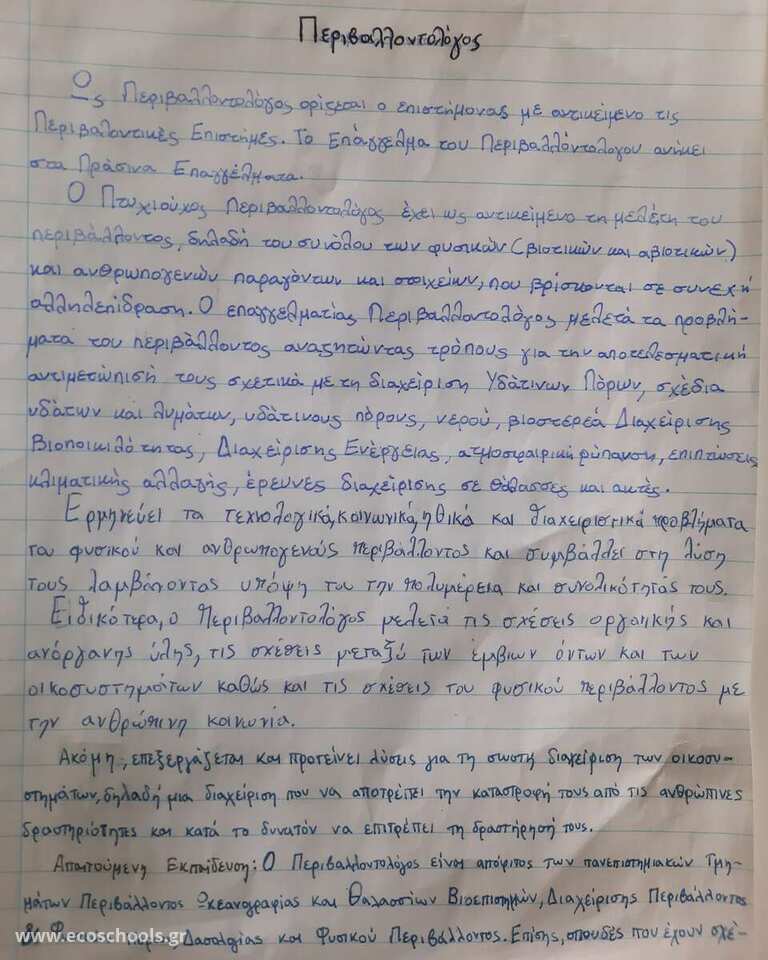 Περιβαλλοντολόγος
Ως Περιβαλλοντολόγος ορίζεται ο επιστήμονας με αντικείμενο τις
Περιβαλοντικές Επιστήμες. Το Επάγγελμα του Περιβαλλόντολογου ανήκει
στα Πράσινα Επαγγέλματα.
Ο Πτυχιούχος Περιβαλλοντολόγος έχει ως αντικείμενο τη μελέτη του
περιβάλλοντος, δηλαδή του συνόλου των φυσικών (βιοτικών και αβιοτικών)
και ανθρωπογενών παραγόντων και στοιχείων, που βρίσκονται σε συνεχή
αλληλεπίδραση. Ο επαγγελματίας Περιβαλλοντολόγος μελετά τα προβλή-
ματα του περιβάλλοντος αναζητώντας τρόπους για την αποτελεσματική
αντιμετώπισή τους σχετικά με τη διαχείριση Υδάτινων Πόρων, σχέδια
υδάτων και λυμάτων, υδάτινους πόρους, νερού, βιοστερεά Διαχείρισης
Βιοποικιλότητας, Διαχείρισης Ενέργειας, ατμοσφαιρική ρύπανση, επιπτώσεις
κλιματικής αλλαγής, έρευνες διαχείρισης σε θάλασσες και ακτές.
Ερμηνεύει τα τεχνολογικά, κοινωνικά, ηθικά και διαχειριστικά προβλήματα
του φυσικού και ανθρωπογενούς περιβάλλοντος και συμβάλλει στη λύση
τους λαμβάνοντας υπόψη του την πολυμέρεια και συνολικότητάς τους.
Ειδικότερα, ο Περιβαλλοντολόγος μελετά τις σχέσεις οργανικής και
ανόργανης ύλης, τις σχέσεις μεταξύ των έμβιων όντων και των
οικοσυστημάτων καθώς και τις σχέσεις του φυσικού περιβάλλοντος με
την ανθρώπινη κοινωνία.
Ακόμη, επεξεργάζεται και προτείνει λύσεις για τη σωστή διαχείριση των οικοσυ-
στημάτων, δηλαδή μια διαχείριση που να αποτρέπει την καταστροφή τους από τις ανθρώπινες
δραστηριότητες και κατά το δυνατόν να επιτρέπει τη δραστήρησή τους.
Απαιτούμενη Εκπαίδευση: Ο Περιβαλλοντολόγος είναι απόφιτος των πανεπιστημιακών Τμη-
μάτων Περιβάλλοντος Ωκεανογραφίας και Θαλασσίων Βιοεπιστημών, Διαχείρισης Περιβάλλοντος
Δασολγίας και Φυσικού Περιβάλλοντος. Επίσης, σπουδές που έχουν σχέ-
www.ecoschools.gr